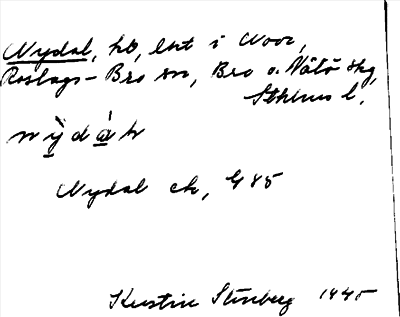 Nydal, hb, lht i Noor,
Roslags-Bro sn, Bro o. Vätö skg,
Sthlms l.
Nydal ek, G 85
Kerstin Stenberg 1945